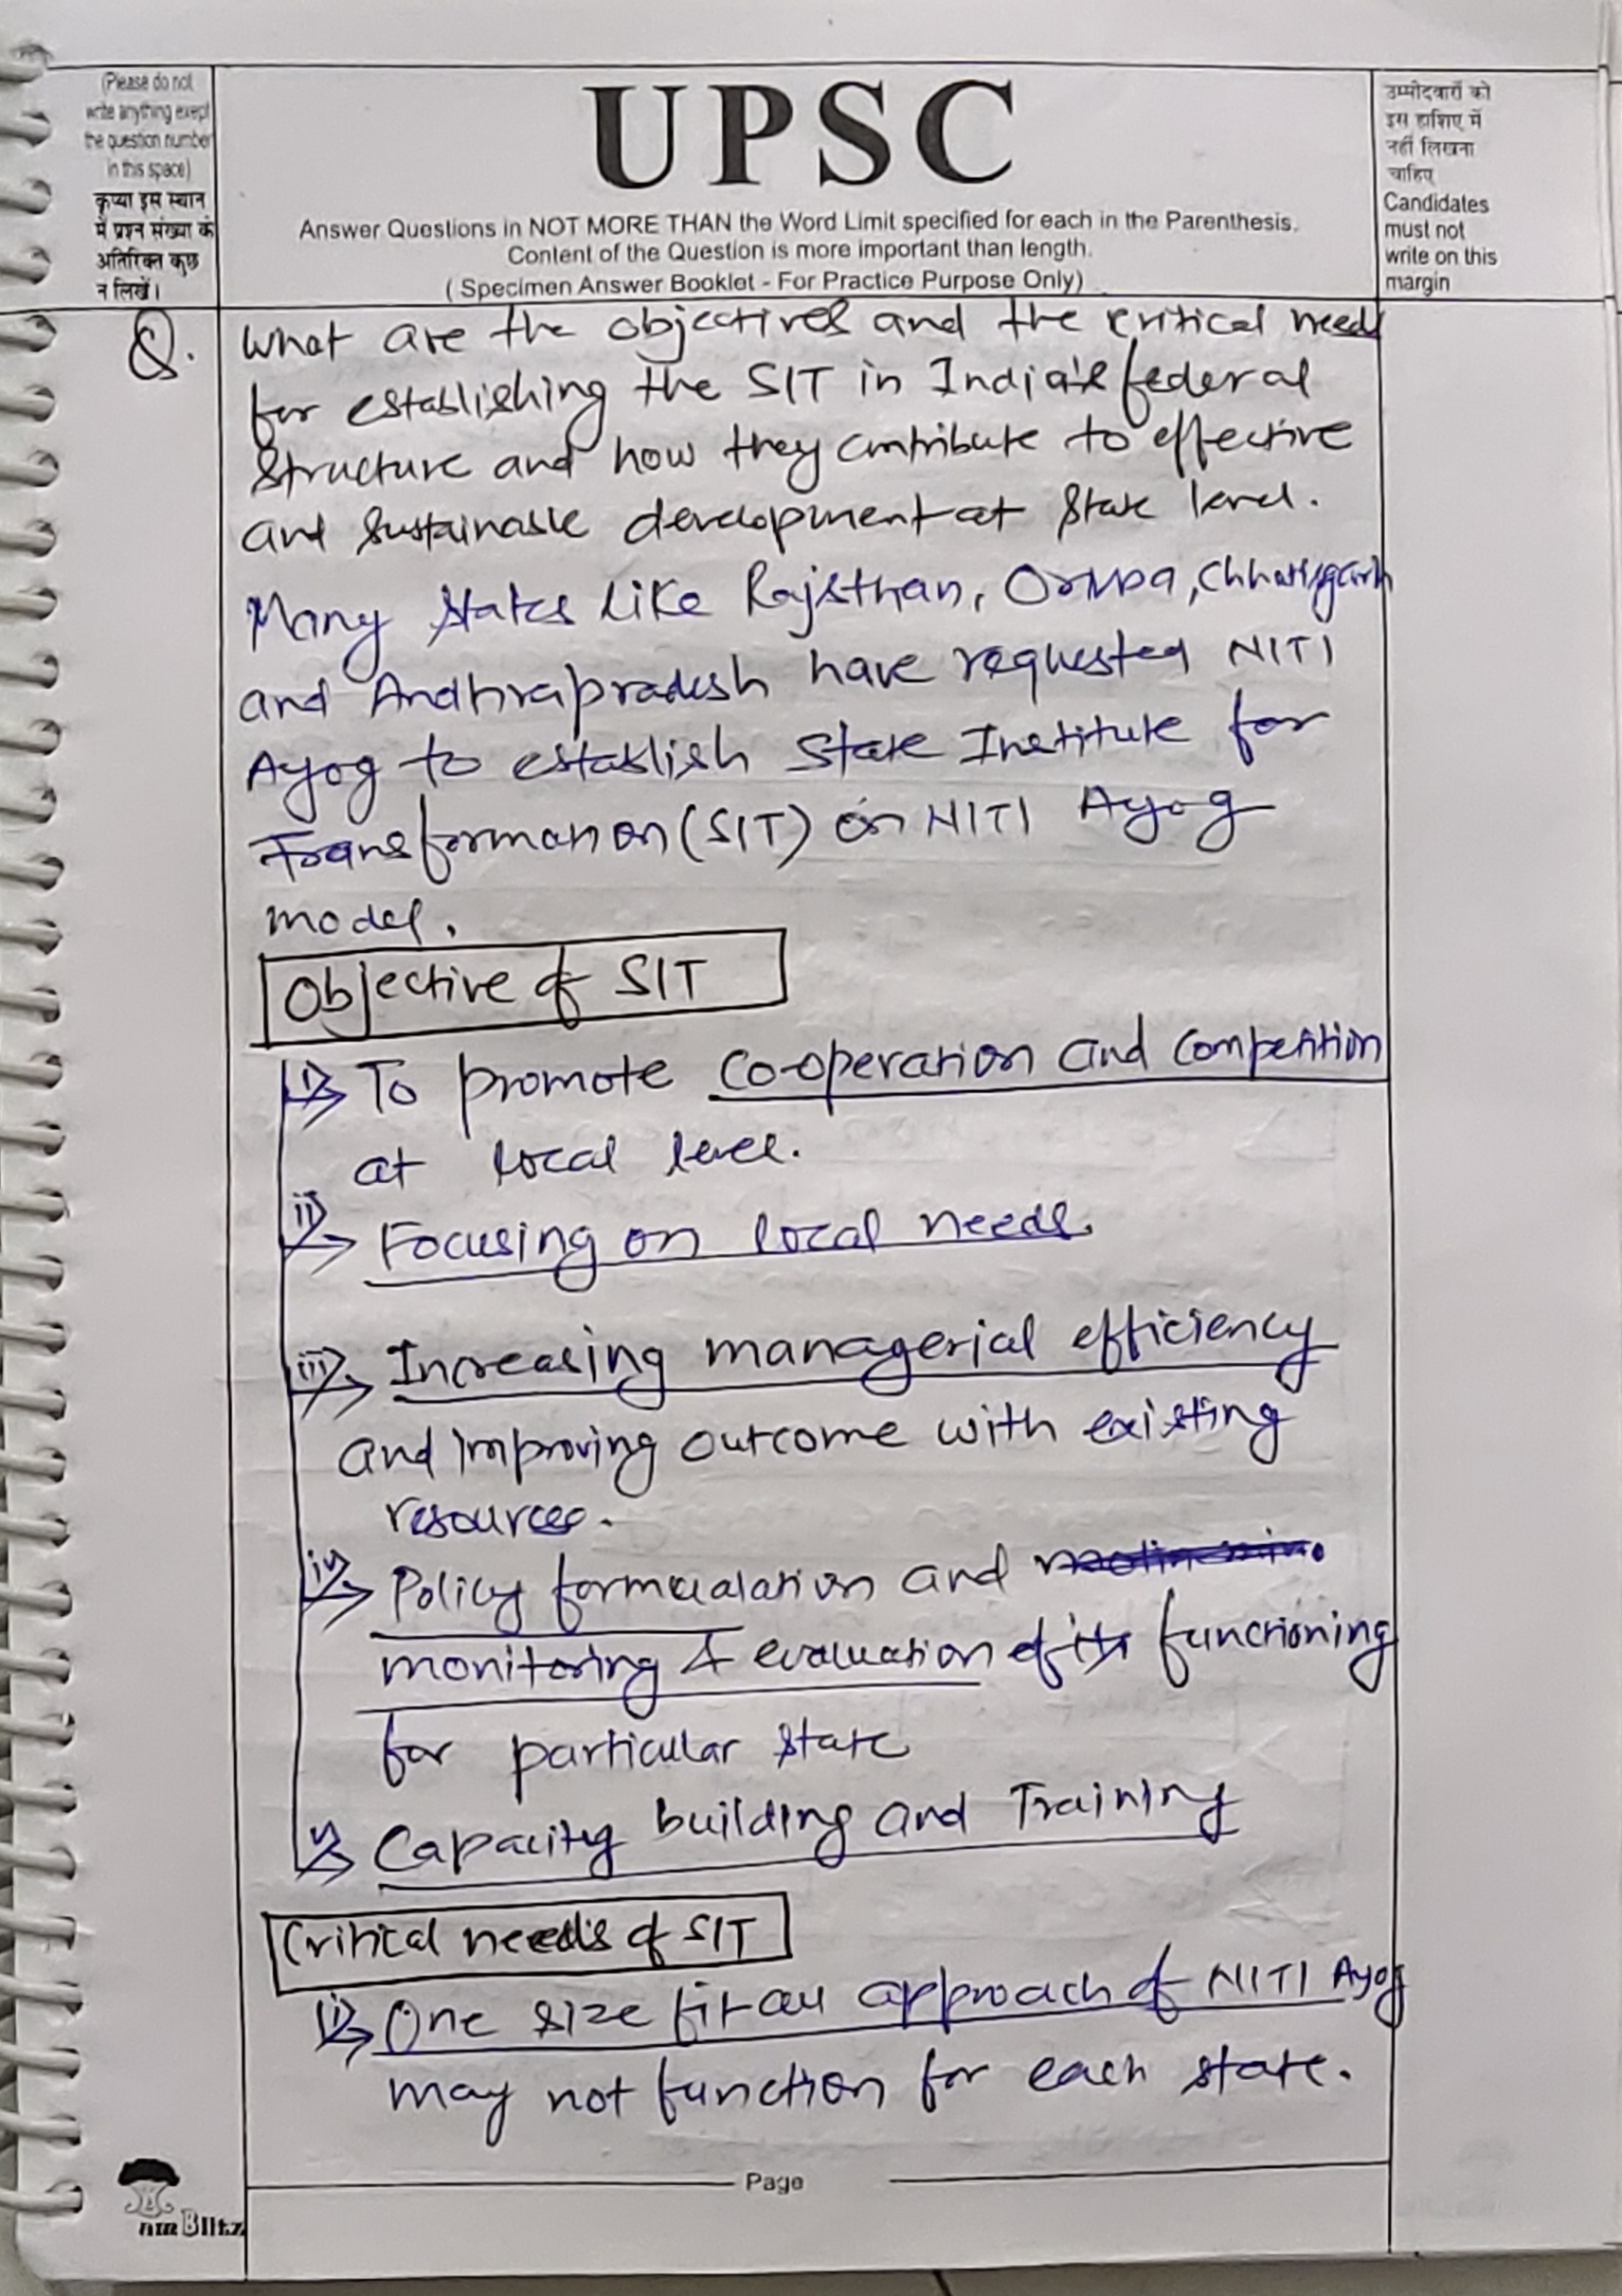 (Please do not
write anything exept
the question number
in this space)
कृप्या इस स्थान
में प्रश्न संख्या के
अतिरिक्त कुछ
न लिखें।
UPSC
Answer Questions in NOT MORE THAN the Word Limit specified for each in the Parenthesis.
Content of the Question is more important than length.
( Specimen Answer Booklet - For Practice Purpose Only)
उम्मीदवारों को
इस हाशिए में
नहीं लिखना
चाहिए
Candidates
must not
write on this
margin
Q. What are the objectives and the critical need
for establishing the SIT in India's federal
structure and how they contribute to effective
and sustainable development at state level.
Many states like Rajsthan, Orissa, Chhatisgarh
and Andhrapradesh have requested NITI
Ayog to establish State Institute for
Transformation (SIT) on NITI Ayog
model.
Objective of SIT
i) To promote co-operation and competition
at local level.
ii) Focusing on local needs.
iii) Increasing managerial efficiency
and improving outcome with existing
resources.
iv) Policy formulation and
monitoring & evaluation of its functioning
for particular state
v) Capacity building and Training
Critical needs of SIT
i) One size fit all approach of NITI Ayog
may not function for each state.
Page
Blitz